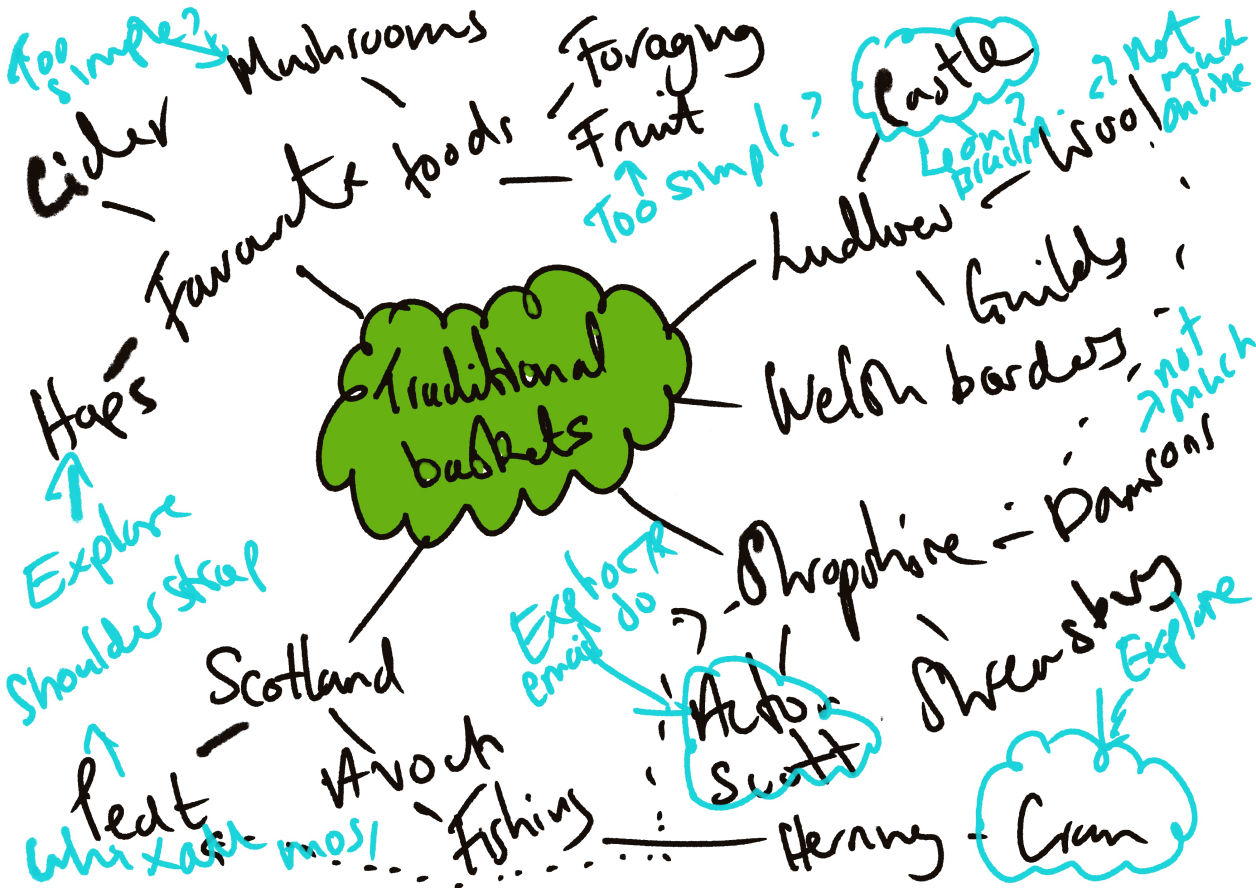 Too
simple?
Mushrooms
Foraging
Castle
? not
much
online
Cider
Favourite foods
Fruit
Too simple?
Wool
Ludlow
Guilds
Traditional
baskets
Welsh borders
not
much
Hops
Explore
Shoulder strap
Shropshire
Damsons
Explore
email
Shrewsbury
Explore
Scotland
Acton
Scott
Peat
Avoch
Fishing
Herring
Cran